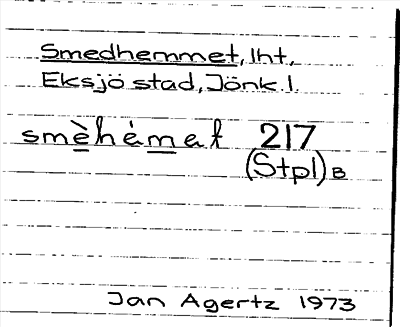 Smedhemmet, lht,
Eksjö stad, Jönk. l.
smèhémat 217
(Stpl) B
Jan Agertz 1973